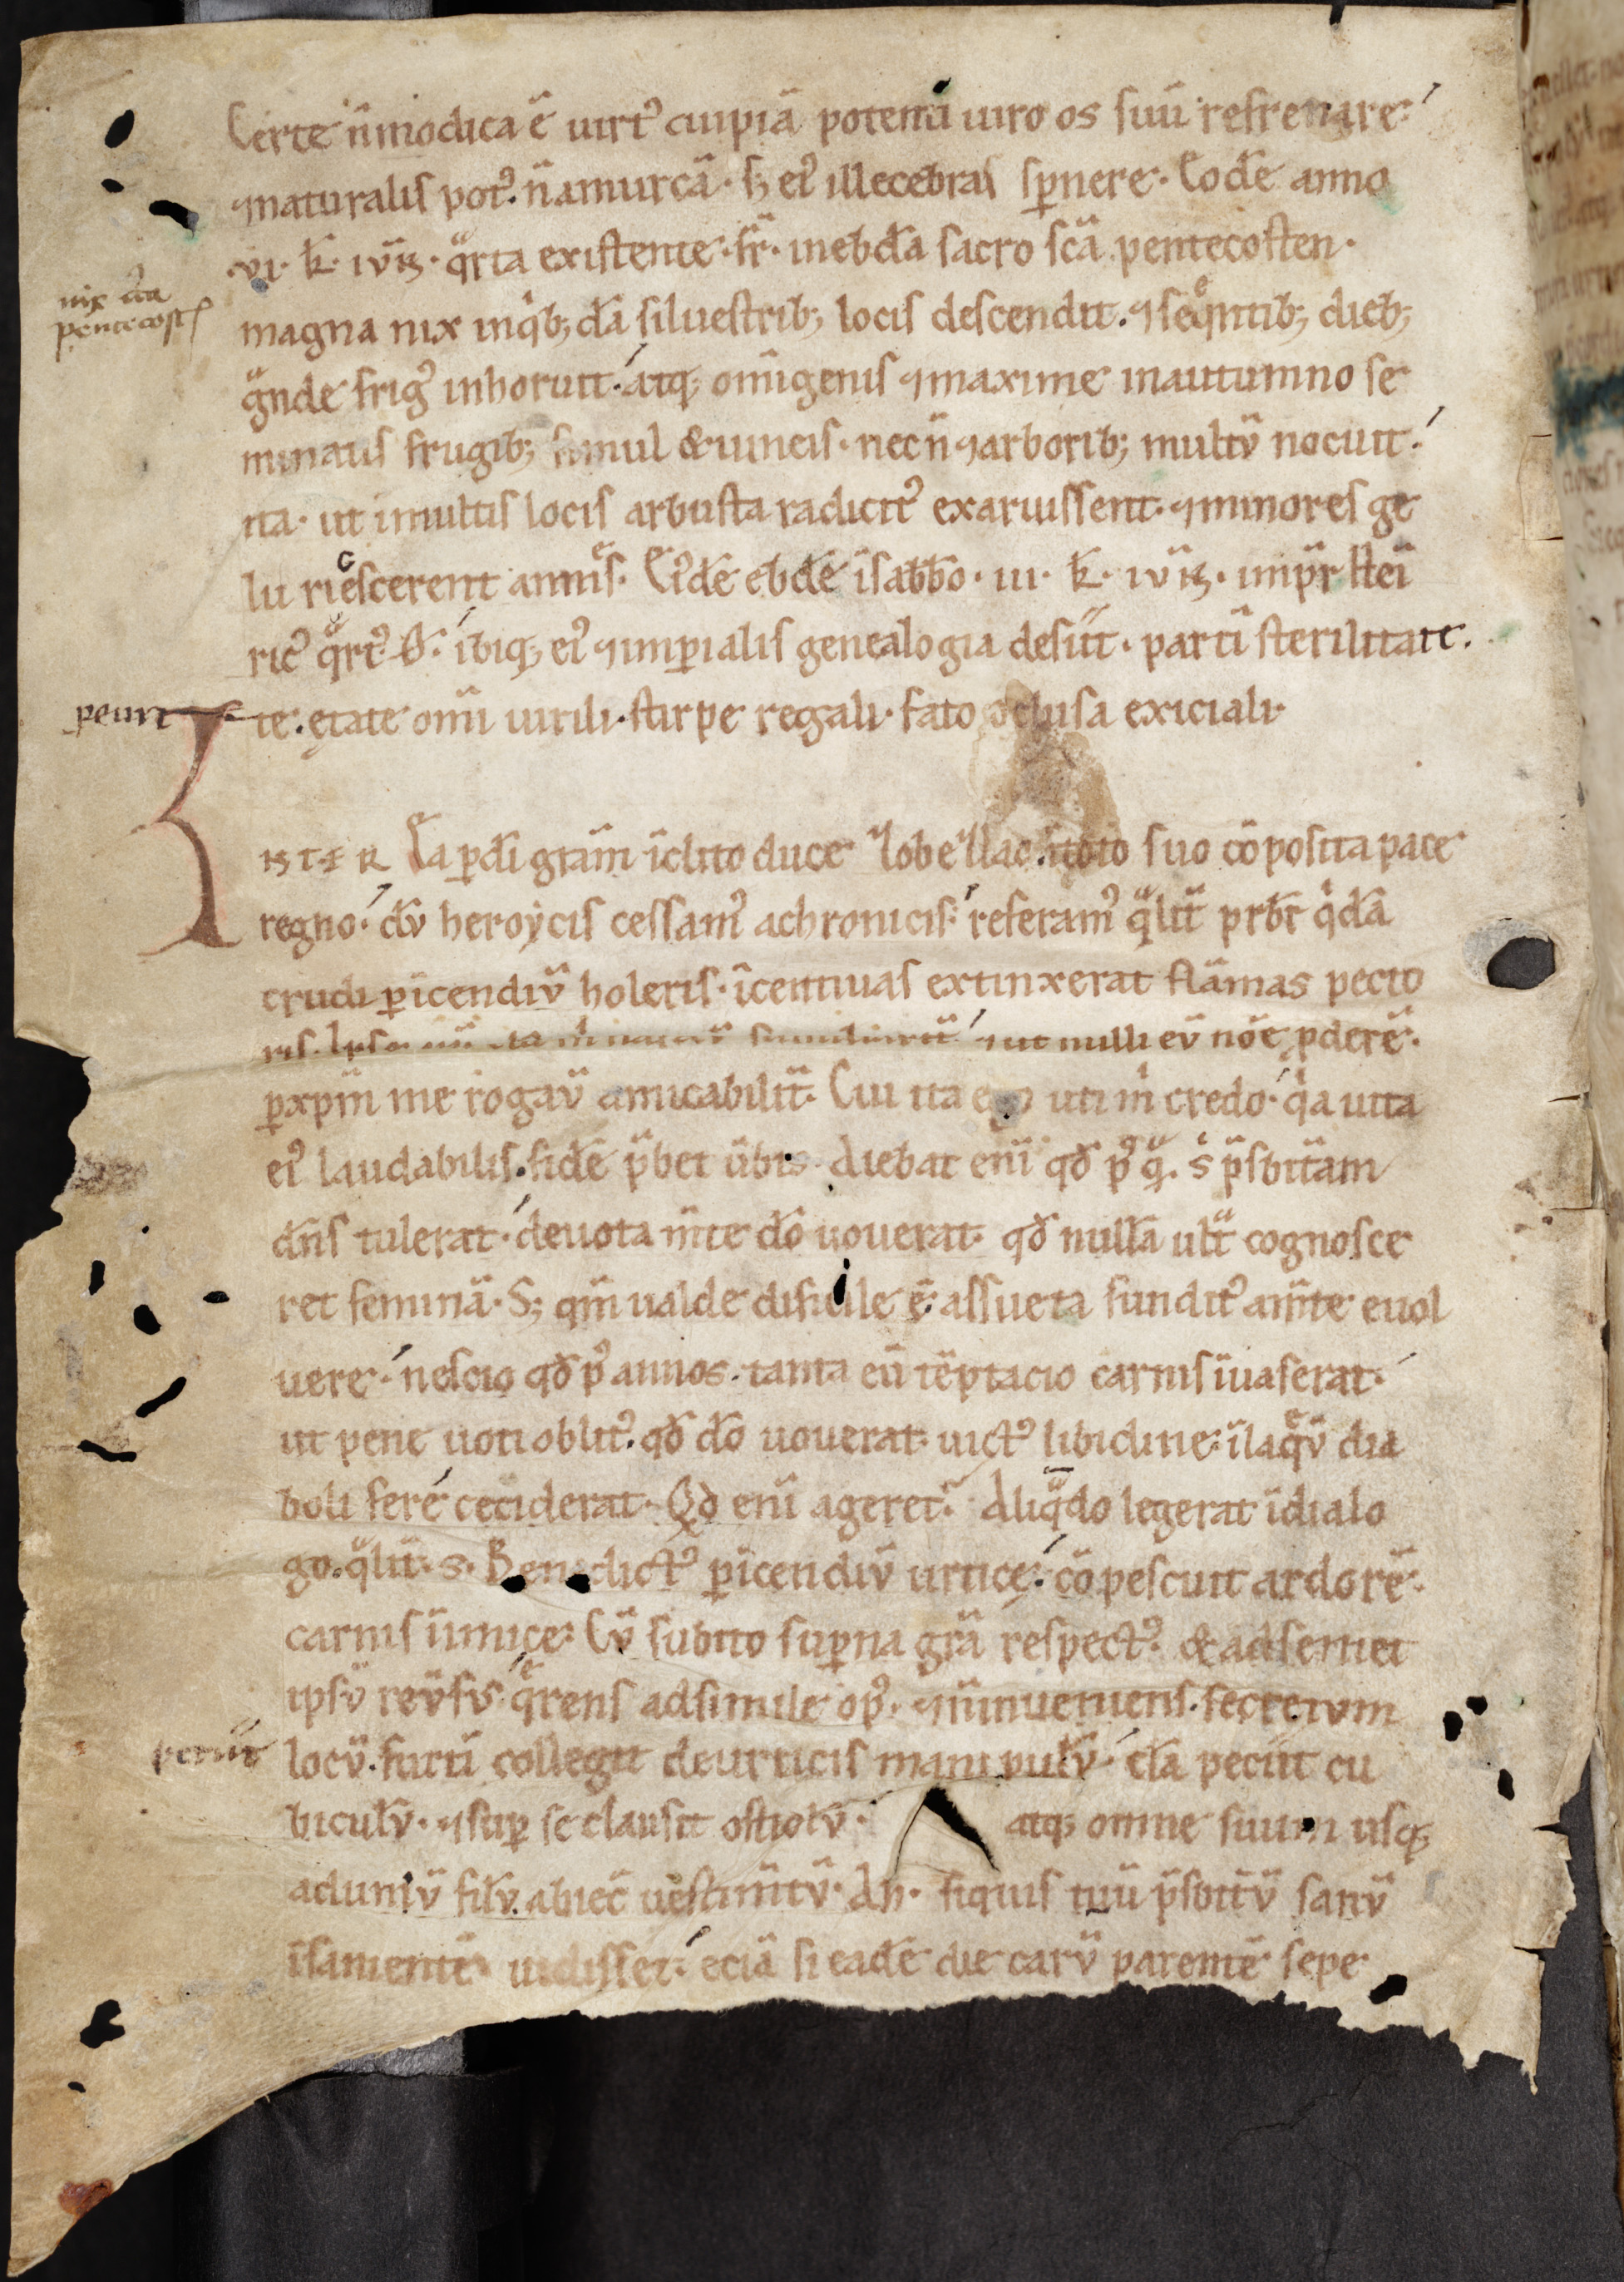 Certe n̄ modica ē uirtꝰ cuipiā potenti uiro os suū refrenare·
⁊naturalis potꝰ. n̄ amurcā· sꝫ eiꝰ illecebras spnere. Eodē anno
·vi· k̄· iv̄n̄· qͣrta existente· fr̄· in ebdā sacro scā pentecosten·
nix circa
pentecost
magna nix in qͥbꝫdā siluestribꝫ locis descendit. ⁊ seqͤntibꝫ diebꝫ
gͣnde frigꝰ inhoruit· atqꝫ om̄igenis ⁊ maxime in autumno se
minatis frugibꝫ simul & uineis· nec n̄ ⁊ arboribꝫ multū nocuit·
ita· ut i multis locis arbusta radicitꝰ exaruissent· ⁊ minores ge
lu riescerent amnes· Eiꝰdē ebdē ī sabb̄o· iii· k̄· iv̄n̄· imp̄r hēi
ricꝰ qͣrtꝰ ꝋ· ibiqꝫ eiꝰ ⁊ imperialis genealogia desiit· partī sterilitate·
te· ętate om̄i uirili· stirpe regali· fato delusa exiciali·
peunt
INTER Ea ꝑ di gr̄am īclito duce Wlodizlao in toto suo cōposita pace
regno· dū heroycis cessamꝰ a chronicis· referamꝰ qͣlit̄ pr̄br qͥdā
crudi ꝑ īcendiū holeris· īcentiuas extinxerat flāmas pecto
ris· Ipse ⁊ ut nulli eū nōē ꝓderē·
ꝑ xp̄m me rogaū amicabilit̄· Cui ita ego uti m̄ credo· qͥa uita
eiꝰ laudabilis· fidē p̄bet ūbis· Aiebat eni qđ pꝰqͣ· sͥ p̄sbit̄am
dn̄s tulerat· deuota m̄te dō uouerat· qđ nullā ult̄ cognosce
ret feminā· Sꝫ qm̄ ualde dificile ē· assueta funditꝰ a m̄te euol
uere· nescio qđ pꝰ annos· tanta eū tēptacio carnis īuaserat·
ut pene uoti oblitꝰ· qđ dō uouerat· uictꝰ libidine· ī laqͤū dia
boli fere ceciderat· Qđ eni ageret· Aliqͣdo legerat ī dialo
go· qͣlit̄· S· Benedictꝰ ꝑ īcendiū urtice· cōpescuit ardorē·
carnis īimice· Cū subito suꝑna grā respectꝰ· & ad semet
ipsū reūsus· qͤrens ad simile opꝰ· ⁊ n̄ inueniens· secretum
locū· furti collegit de urticis manipulū· clā peciit cu
peciit
biculū· ⁊ suꝑ se clausit ostiolū· atqꝫ omne suum usqꝫ
ad unū filū abiec̄ uestim̄tū· Ah· si quis tuū p̄sbit̄ū sanū
īsanientē uidisset· eciā si eadē die carū parentē sepe